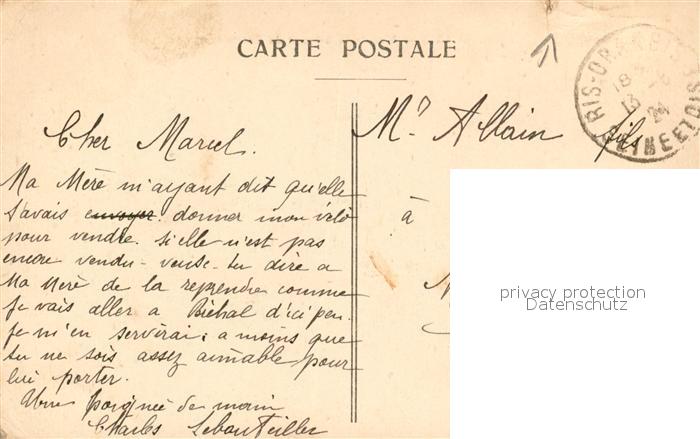 CARTE POSTALE
RIS-ORANGIS
18
13 - 6
24
SEINE ET OISE
Cher Marcel.
Mr. Allain fils
à
Ma Mère m'ayant dit qu'elle
t'avais envoyer donner mon vélo
pour vendre. Si elle n'est pas
encore vendu - veuse - tu dire a
Ma Mère de la reprendre comme
Je vais aller a d'ici peu.
Je m'en servirai; a moins que
tu ne sois assez aimable pour
lui porter.
Une poignée de main
Charles Lebouteiller
privacy protection
Datenschutz